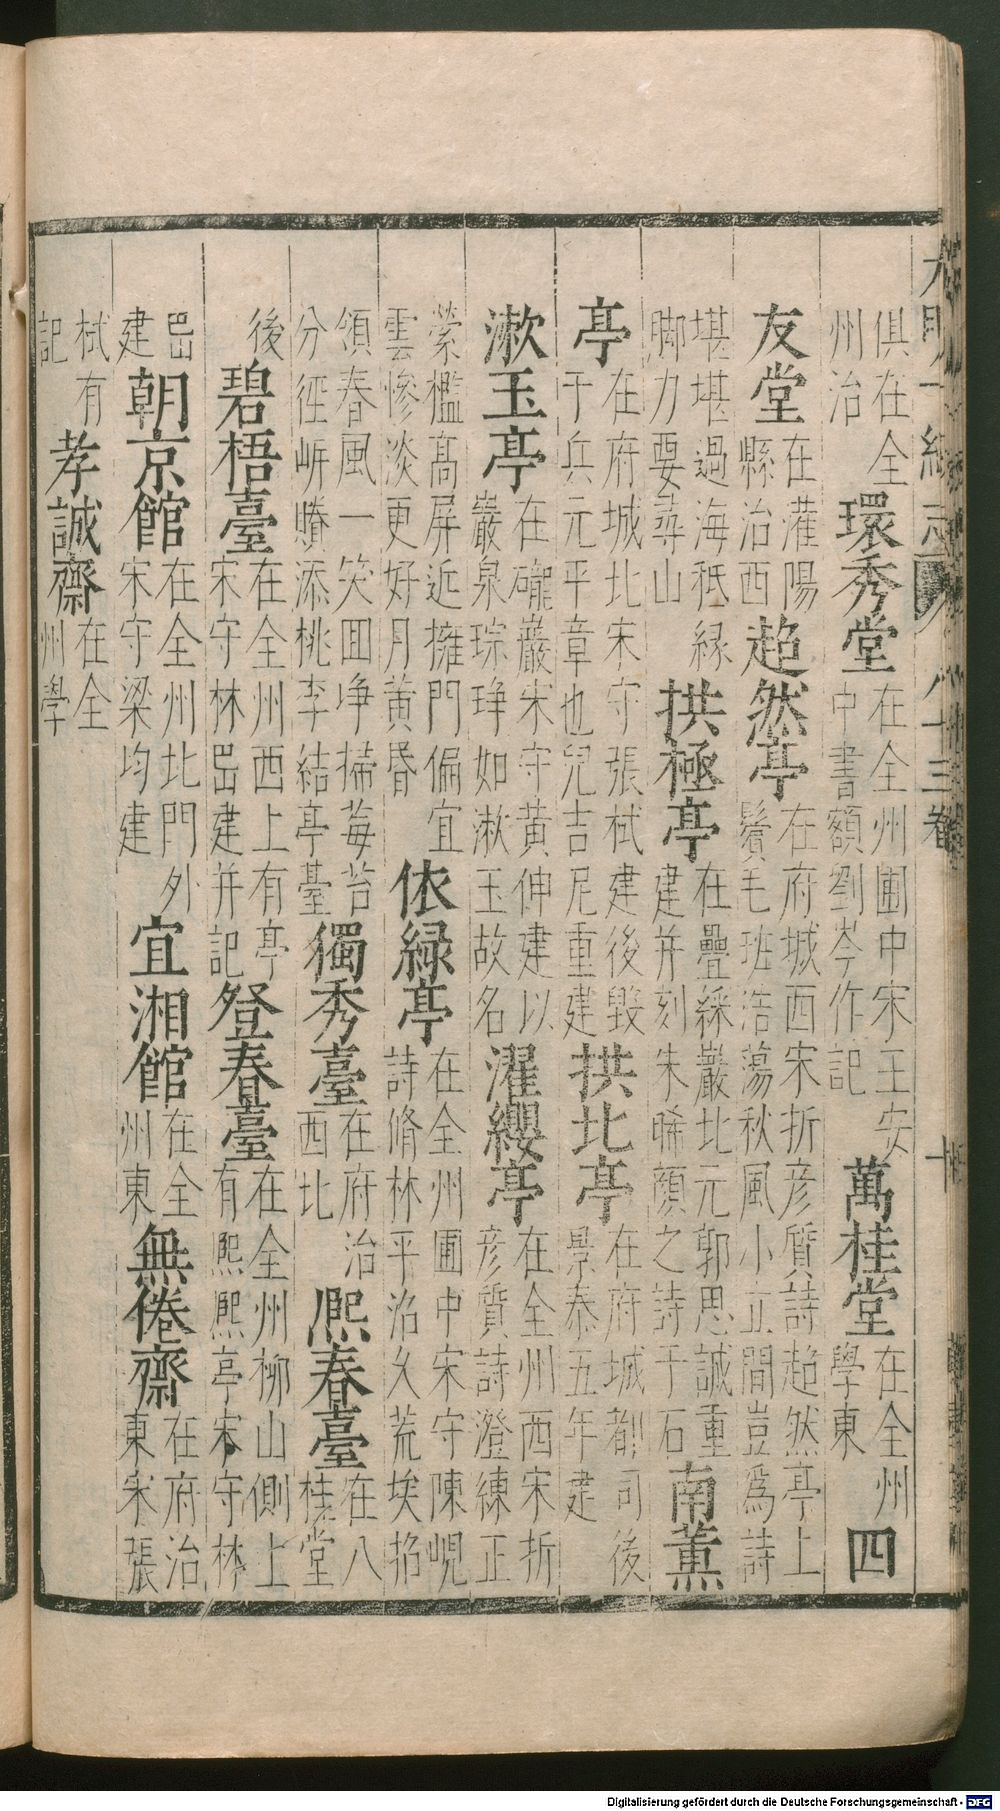 大明一統志 八十三卷
俱在全州治 環秀堂 在全州圃中宋王安中書額劉岑作記 萬桂堂 在全州學東 四
友堂 在灌陽縣治西 超然亭 在府城西宋折彦質詩超然亭上鬢毛班浩蕩秋風小立間豈爲詩
堪堪過海秖緑脚力要尋山 拱極亭 在疊綵巖北元郭思誠重建并刻朱晞顔之詩于石 南薰
亭 在府城北宋守張栻建後毀于兵元平章也兒吉尼重建 拱北亭 在府城都司後景泰五年建
漱玉亭 在礲巖宋守黄伸建以巖泉琮琤如漱玉故名 濯纓亭 在全州西宋折彦質詩澄練正
縈檻髙屏近擁門偏宜雲慘淡更好月黄昬 依緑亭 在全州圃中宋守陳峴詩脩林平沿久荒埃招
領春風一笑囬爭掃莓苔分徑岍賸添桃李結亭臺 獨秀臺 在府治西北 熈春臺 在八桂堂
後 碧梧臺 在全州西上有亭宋守林岊建并記 登春臺 在全州柳山側上有熈熈亭宋守林
岊建 朝京館 在全州北門外宋守梁均建 宜湘館 在全州東 無倦齋 在府治東宋張
栻有記 孝誠齋 在全州學
Digitalisierung gefördert durch die Deutsche Forschungsgemeinschaft - DFG